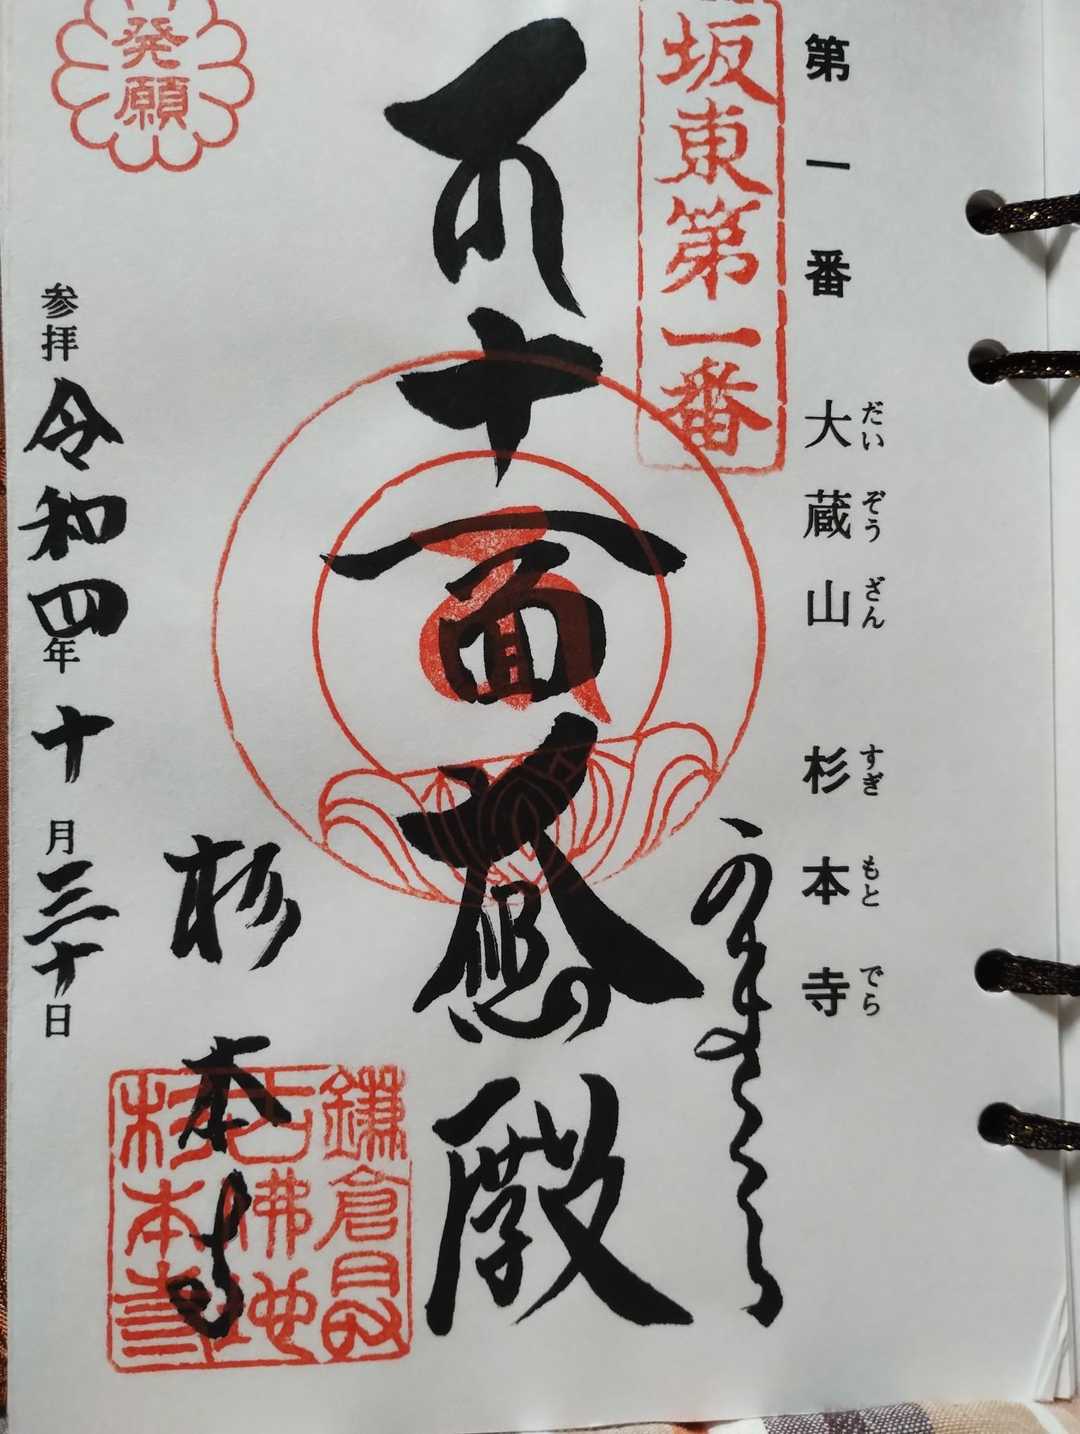 第一番 大蔵山 杉本寺
だいぞうざん すぎもとでら
坂東第一番
十一面大悲殿
杉本寺
鎌倉最
古佛地
杉本寺
発願
参拝 令和四年十月三十日